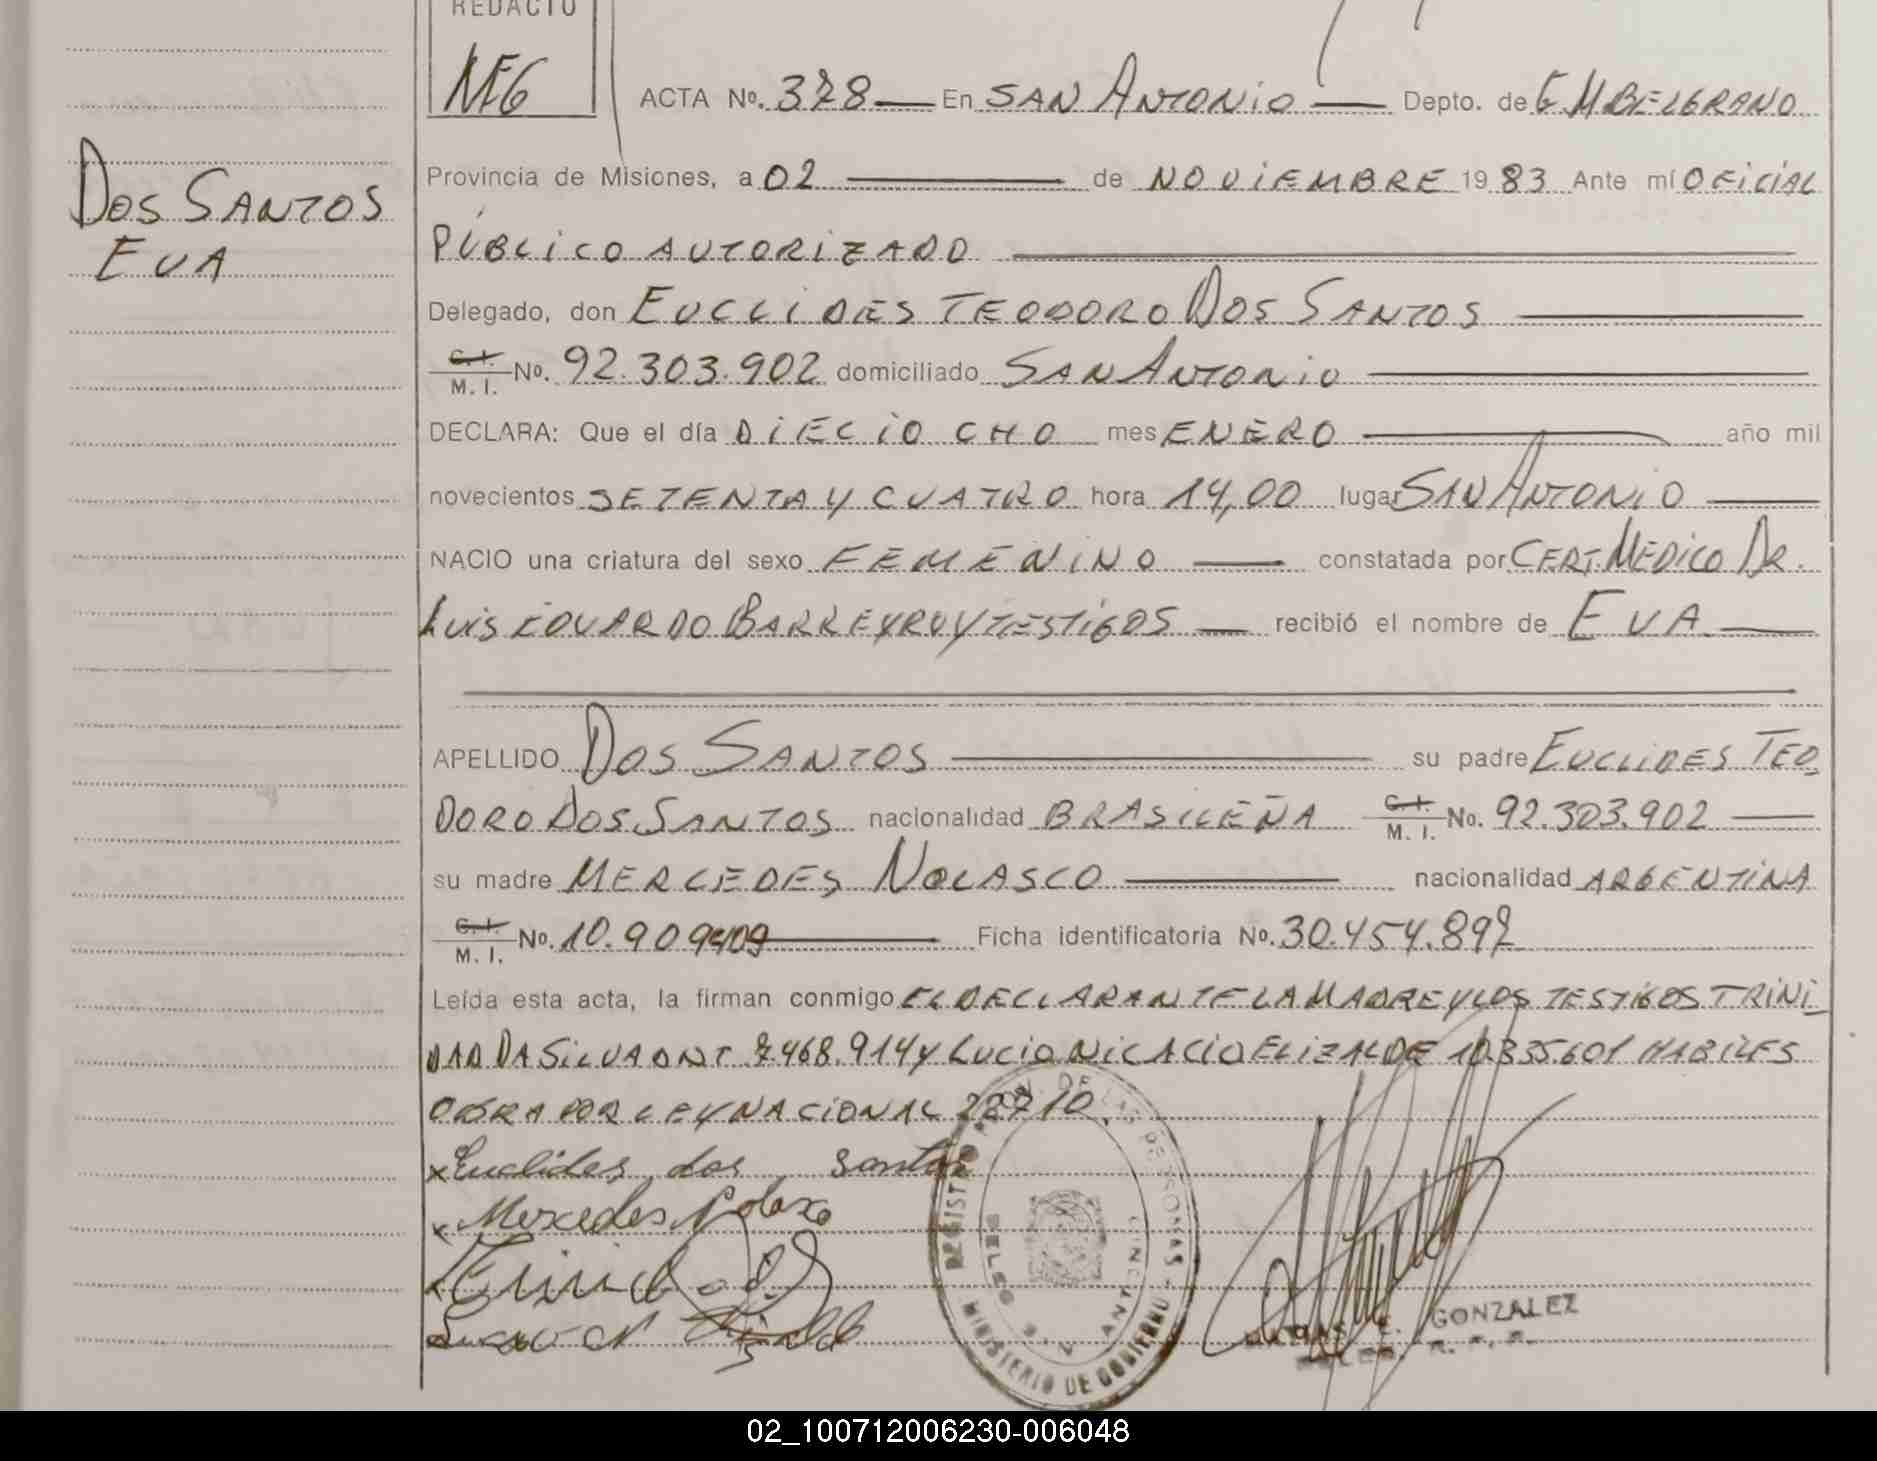 REDACTO
NEG
ACTA No. 378 En SAN ANTONIO Depto. de G M BELGRANO
Provincia de Misiones, a 02 de NOVIEMBRE 19 83 Ante mí OFICIAL
PÚBLICO AUTORIZADO
DOS SANTOS
EVA
Delegado, don EUCLIDES TEODORO DOS SANTOS
C.I. M. I. No. 92.303.902 domiciliado SAN ANTONIO
DECLARA: Que el día DIECIOCHO mes ENERO año mil
novecientos SETENTA Y CUATRO hora 14,00 lugar SAN ANTONIO
NACIO una criatura del sexo FEMENINO constatada por CERT. MEDICO DR.
LUIS EDUARDO BARREYRO Y TESTIGOS recibió el nombre de EVA
APELLIDO DOS SANTOS su padre EUCLIDES TEO
DORO DOS SANTOS nacionalidad BRASILEÑA C.I. M. I. No. 92.303.902
su madre MERCEDES NOLASCO nacionalidad ARGENTINA
C.I. M. I. No. 10.909409 Ficha identificatoria No. 30.454.897
Leída esta acta, la firman conmigo EL DECLARANTE LA MADRE Y LOS TESTIGOS TRINI
DAD DA SILVA DNI 7.468.914 y LUCIO NICACIO ELIZALDE 10.335.601 HABILES
OBRA POR LEY NACIONAL 22710
x Euclides dos santos
x Mercedes Nolasco
REGISTRO DE LAS PERSONAS
MINISTERIO DE GOBIERNO
GONZALEZ
02_100712006230-006048